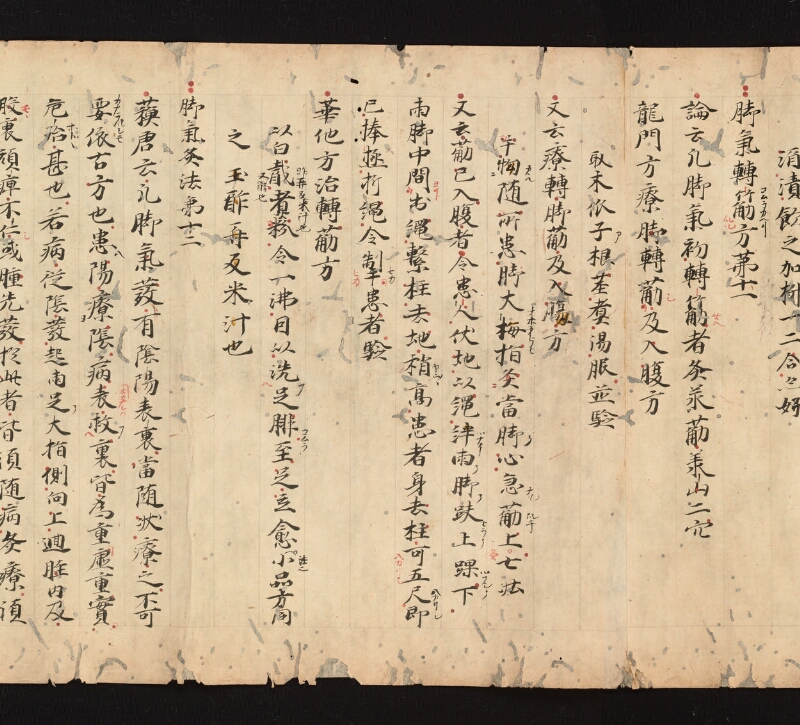 消漬飲之加椒一二合々好
脚氣轉筋方第十一
論云凡脚氣初轉筋者灸承筋承山二穴
龍門方療脚轉筋及入腹方
取木依子根莖煮湯服並驗
又云療轉脚筋及入腹方
手拗随所患脚大拇指灸當脚心急筋上七壮
又云筋已入腹者令患人伏地以繩絆兩脚趺上踝下
兩脚中間出繩繋柱去地稍高患者身去柱可五尺即
已捧極折繩令掣患者驗
華他方治轉筋方
以白酨煮粢令一沸日以洗足腓至足立愈小品方同
之 玉酢舟及米汁也
脚氣灸法第十二
蘓唐云凡脚氣發有陰陽表裏當随状療之不可
要依古方也患陽療陰病表救裏皆為重虚重實
危殆甚也若病從陰發起兩足大指側向上迊脛内及
股裏頑痺不仁或腫先發於此者皆須随病灸療須